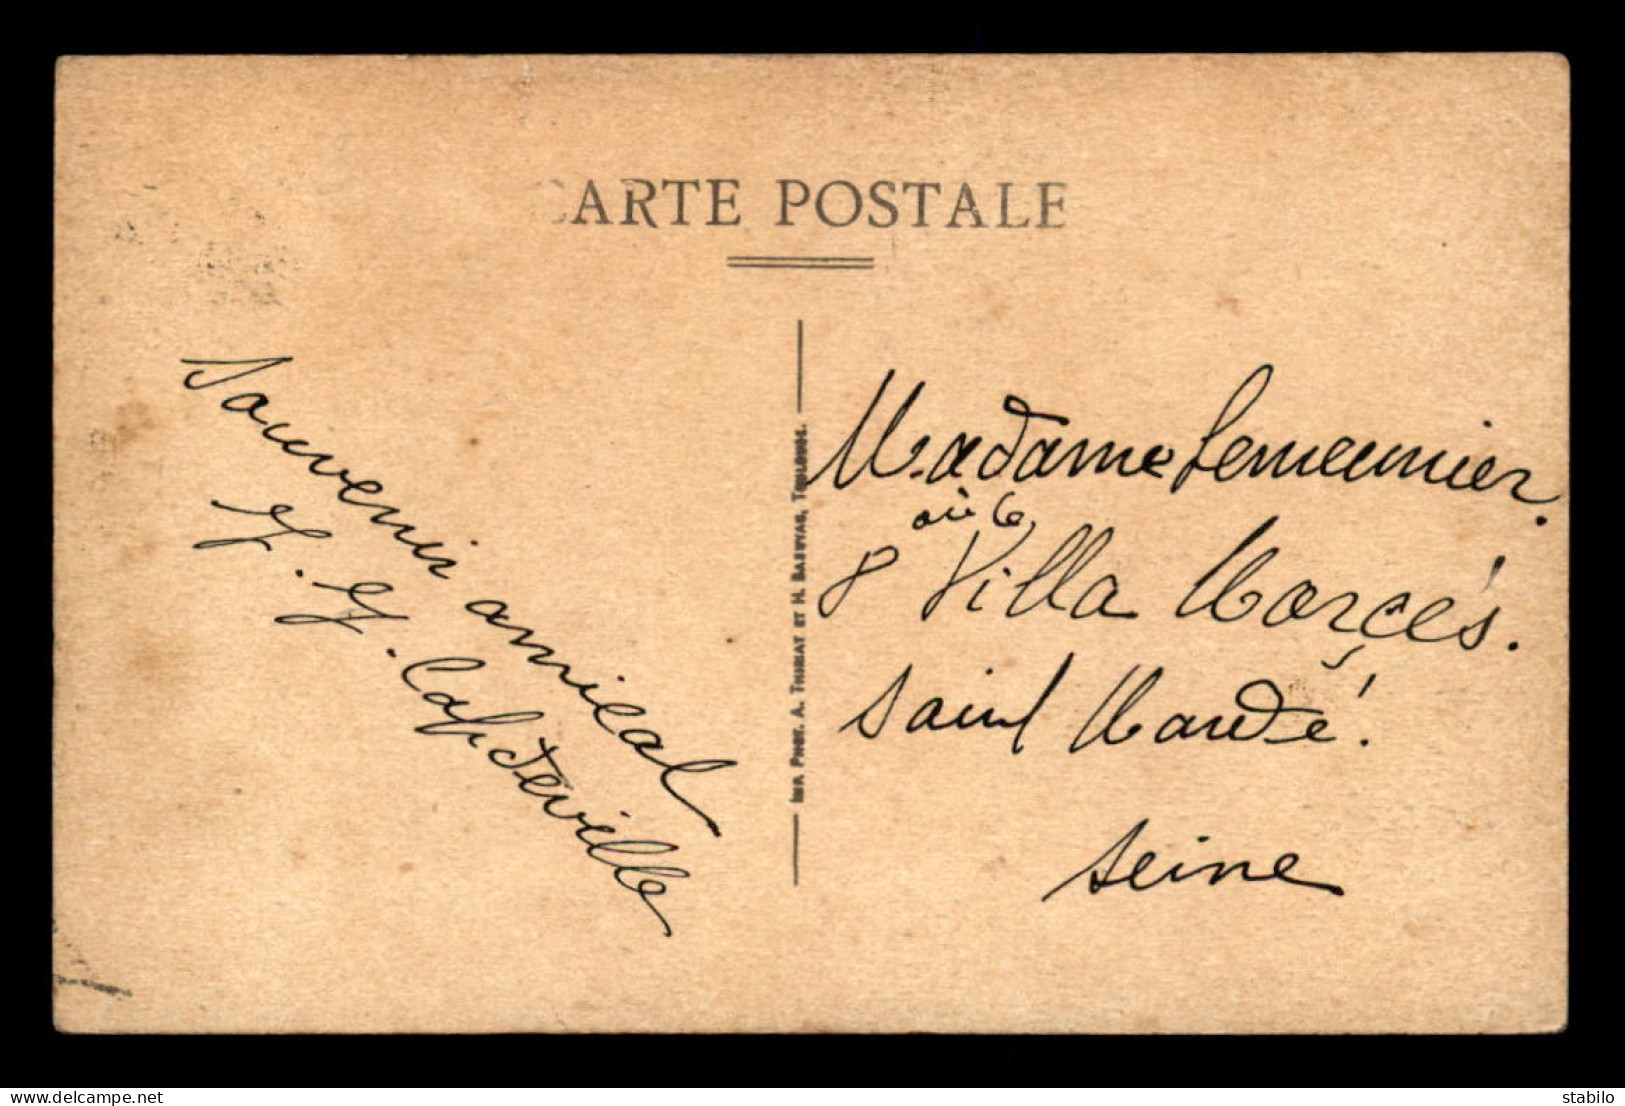 CARTE POSTALE
Souvenir amical
Y. Y. Capdeville
IMP. PHOT. A. THIRIAT ET H. BASUYAU, TOULOUSE.
Madame Lemeunier.
8 Villa Marcès.
Saint Mandé.
Seine
delcampe.net
stabilo